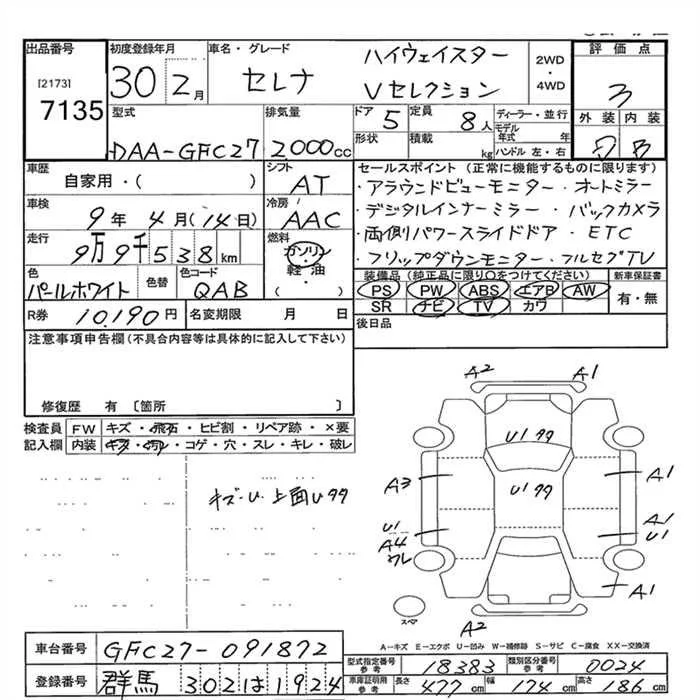 出品番号 初度登録年月 車名・グレード 2WD・4WD 評価点
[2173]
7135
30 2月 セレナ ハイウェイスター
Vセレクション
3
型式 排気量 ドア 定員 ディーラー・並行 外装 内装
DAA-GFC27 2000cc 5 8人 モデル年式 年
形状 積載 kg ハンドル 左・右
B
車歴 シフト セールスポイント(正常に機能するものに限ります)
自家用・( ) AT ・アラウンドビューモニター・オートミラー
車検 冷房 ・デジタルインナーミラー・バックカメラ
9年4月(14日) AAC ・両側パワースライドドア・ETC
走行 燃料 ・フリップダウンモニター・フルセグTV
9万9千538km ガソリン・軽油・( )
色 色替 色コード 装備品(純正品に限り○をつけてください) 新車保証書
パールホワイト QAB PS PW ABS エアB AW 有・無
SR ナビ TV カワ
R券 10,190円 名変期限 月 日 後日品
注意事項申告欄(不具合内容等は具体的に記入して下さい)
修復歴 有〔箇所 〕
検査員 FW キズ・飛石・ヒビ割・リペア跡・×要
記入欄 内装 キズ・汚れ・コゲ・穴・スレ・キレ・破レ
キズ・U・上面Uタタ
A2 A1
U1タタ
A3 U1タタ A1
U1 A1
A4 U1
ワレ
A1
スペア A2
A-キズ E-エクボ U-凹み W-補修跡 S-サビ C-腐食 XX-交換済
車台番号 GFC27-091872
型式指定番号参考 18383 類別区分番号参考 0024
登録番号 群馬 302 は 1924
車庫証明用参考 長さ 477cm 幅 174cm 高さ 186cm